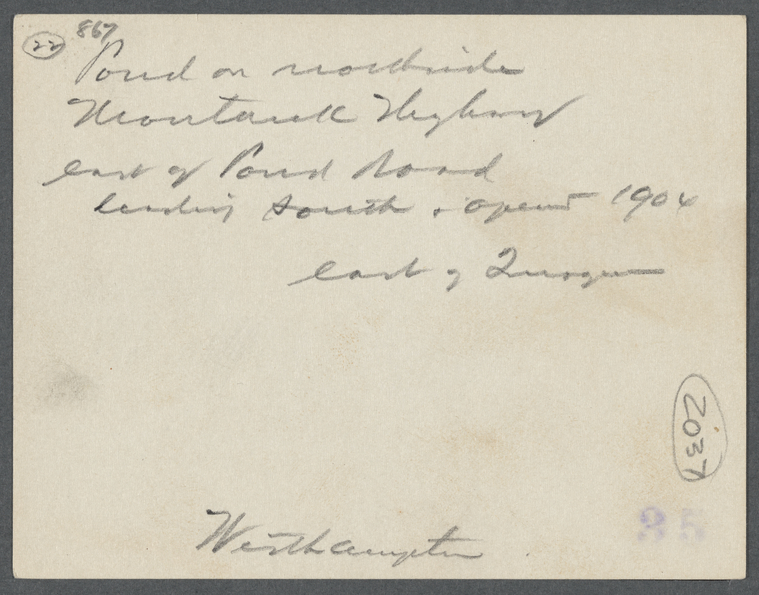 22
867
Pond on northside
Montauk Highway
east of Pond Road
leading south opened 1904
east of Quogue
2037
Westhampton